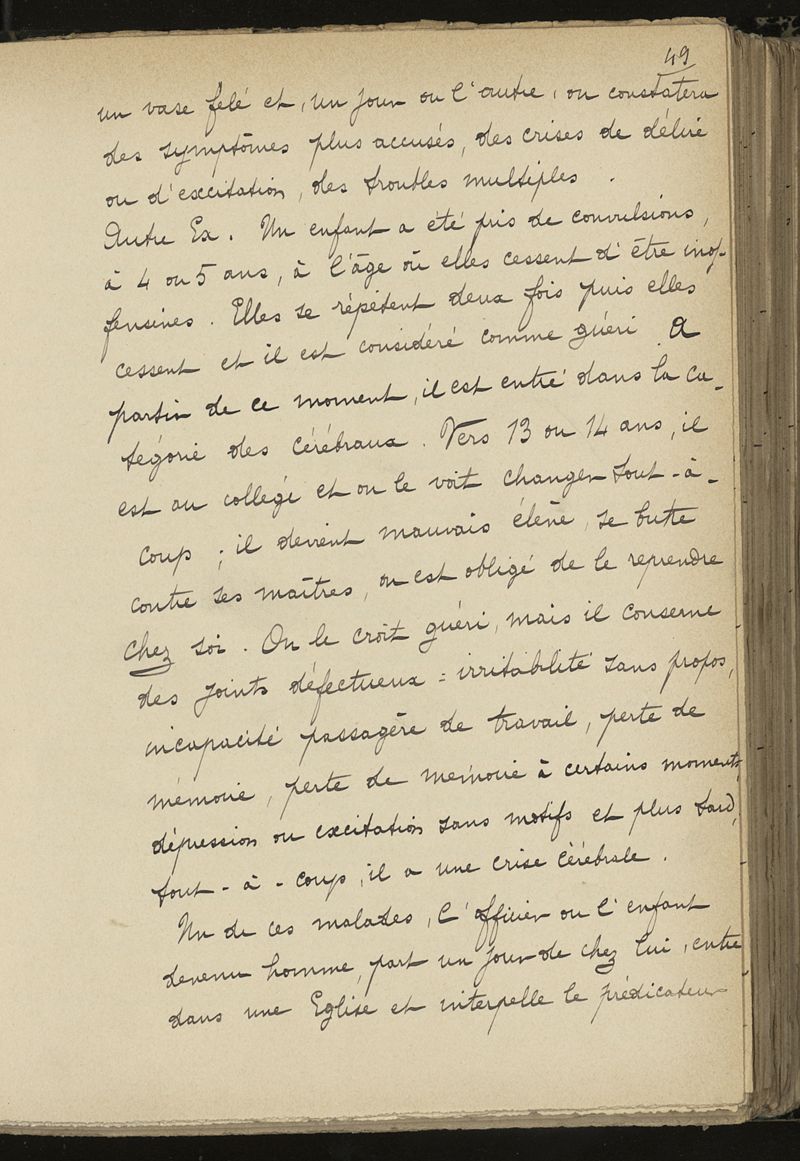 49
un vase fêlé et, un jour ou l'autre, on constatera
des symptômes plus accusés, des crises de délire
ou d'excitation, des troubles multiples .
Autre Ex. Un enfant a été pris de convulsions,
à 4 ou 5 ans, à l'âge où elles cessent d'être inof-
fensives. Elles se répètent deux fois puis elles
cessent et il est considéré comme guéri. A
partir de ce moment, il est entré dans la ca-
tégorie des cérébraux. Vers 13 ou 14 ans, il
est au collège et on le voit changer tout-à-
coup ; il devient mauvais élève, se butte
contre ses maîtres, on est obligé de le reprendre
chez soi. On le croit guéri, mais il conserve
des joints défectueux = irritabilité sans propos,
incapacité passagère de travail, perte de
mémoire, perte de memoire à certains moments,
dépression ou excitation sans motifs et plus tard,
tout-à-coup, il a une crise cérébrale.
Un de ces malades, l'officier ou l'enfant
devenu homme, part un jour de chez lui, entre
dans une Eglise et interpelle le prédicateur